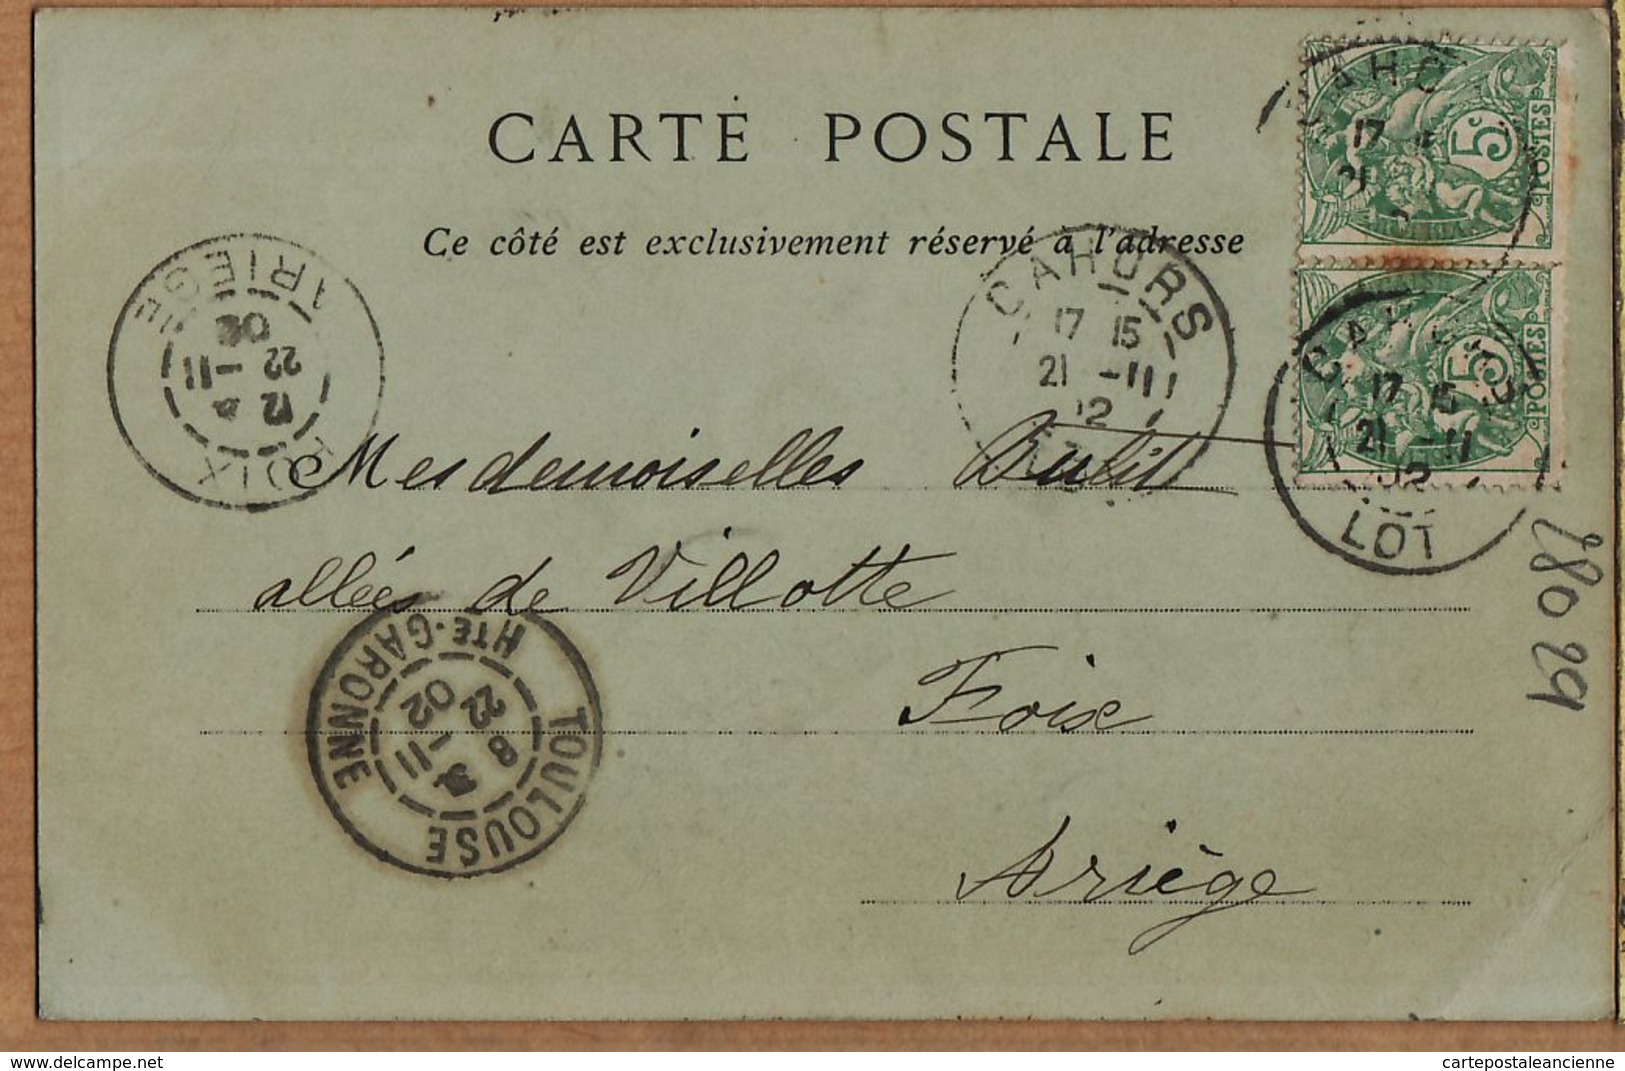 CARTE POSTALE
Ce côté est exclusivement réservé à l'adresse
5c
POSTES
CAHO
17 15
21
5c
POSTES
CAHORS
17 15
21 -11
02
LOT
CAHORS
17 15
21 -11
02
FOIX
ARIEGE
12
22 -11
02
Mesdemoiselles Bulit
allées de Villotte
Foix
Ariège
TOULOUSE
HTE-GARONNE
8
22 -11
02
28029
delcampe.net
cartepostaleancienne